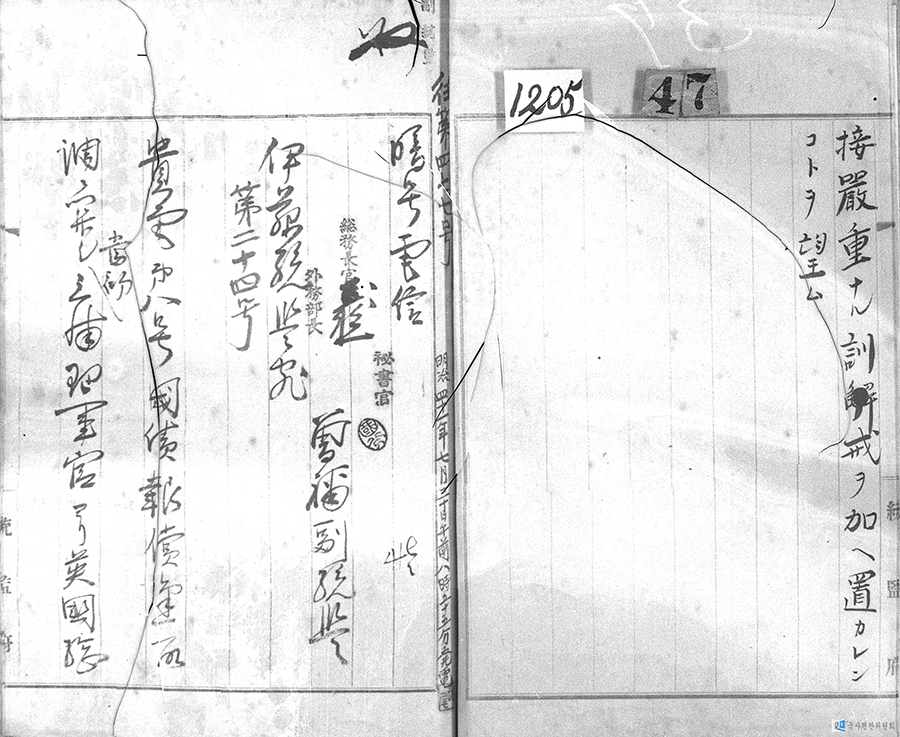 47
1205
接嚴重ナル訓解戒ヲ加ヘ置カレン
コトヲ望ム
統監府
往第四十七号
明治四十一年七月二十日午前八時五十五分発電
暗号電信
秘書官
総務長官
外務部長
曽禰副統監
伊藤統監宛
第二十四号
貴電第八号國債報償金
調
當
三浦理事官ヨリ英國総
統監府
국사편찬위원회